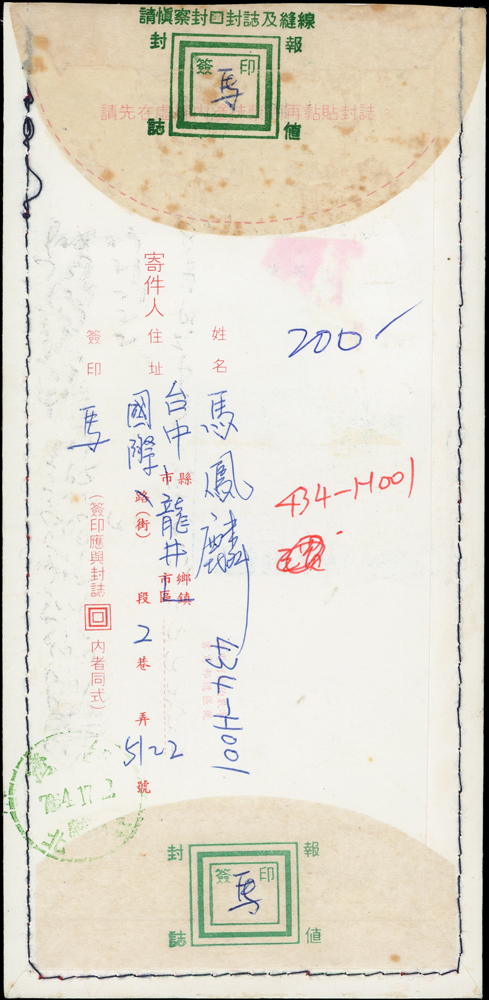 請慎察封口封誌及縫線
封 報
誌 值
簽 印
馬
請先在虛
再黏貼封誌
200
434-H001
姓名 馬鳳麟 434-H001
寄件人 住址 台中 縣市 龍井 鄉鎮市區
國際 路(街) 段 2 巷 弄 51-22 號
簽印 馬 (簽印應與封誌 回 內者同式)
784.17.2
封 報
誌 值
簽 印
馬